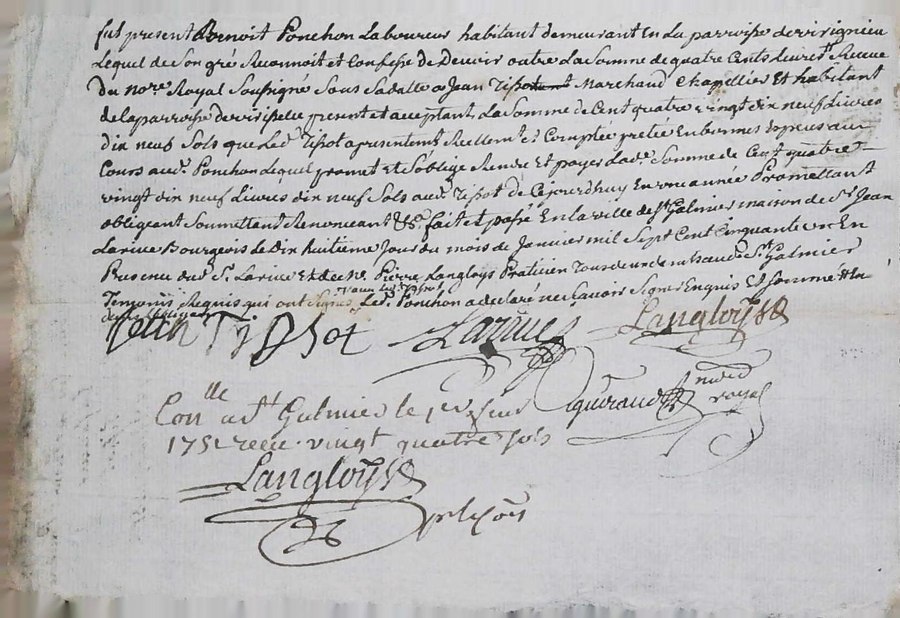 fut present Benoit Ponchon Laboureur habitant demeurant En La parroisse de virignieu
Lequel de Son gré Reconnoit et Confesse De Devoir outre La Somme de quatre Cents Livres Receue
Du nore. Royal Soussigné Sous Sa datte a Jean Tissot Marchand Chapellier Et habitant
de la parroisse de present et acceptant La Somme de Cent quatre vingt dix neuf Livres
Dix neuf Sols que Led. Tissot a presentemt. Reellemt. et Comptée pretée En bonnes Especes au
Cours aud. Ponchon Lequel promet Et S'oblige Rendre Et payer Lade. Somme de Cent quatre
vingt dix neuf Livres dix neuf Sols aud. Tissot De Cejourdhuy En une année Promettant
obligeant Soumettant Renoncant &a. fait et passé En La ville de St. Galmier maison de Sr. Jean
Larüe Bourgeois Le Dix huitieme Jour du mois de Janvier mil Sept Cent Cinquante un En
Presence dud. Sr. Larüe Et de Me. Pierre Langloys Praticien tous deux de St. Galmier
Temoins Requis qui ont Signé Led. Ponchon a declaré ne Scavoir Signer Enquis Et Sommé
Larüe
Langloys
Conlle. a St. Galmier le
1751 receu vingt quatre sols
royal
Langloys